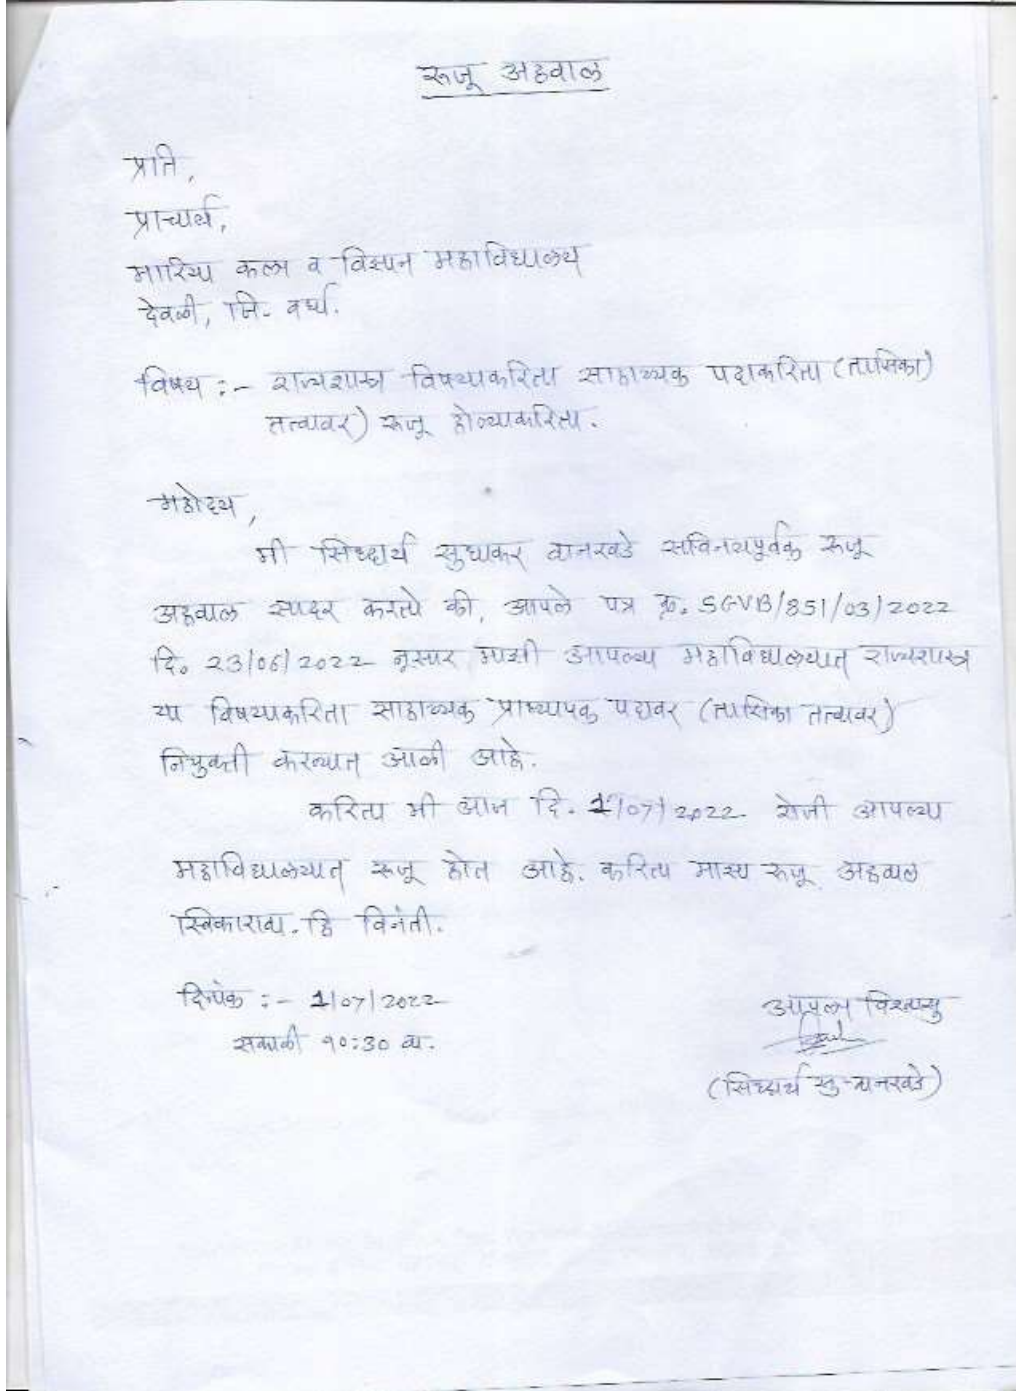 रूजू अहवाल
प्रति,
प्राचार्य,
मारिया कला व विज्ञान महाविद्यालय
देवळी, जि. वर्धा.
विषय :- राज्यशास्त्र विषयाकरिता साहाय्यक पदाकरिता (तासिका)
तत्वावर) रूजू होण्याकरिता.
महोदय,
मी सिध्दार्थ सुधाकर वानखडे सविनयपुर्वक रूजू
अहवाल सादर करतो की, आपले पत्र क्र. SGVB/851/03/2022
दि. 23/06/2022 नूसार माझी आपल्या महाविद्यालयात राज्यशास्त्र
या विषयाकरिता साहाय्यक प्राध्यापक पदावर (तासिका तत्वावर)
नियुक्ती करन्यात आली आहे.
करिता मी आज दि. 1/07/2022 रोजी आपल्या
महाविद्यालयात रूजू होत आहे. करिता माझा रूजू अहवाल
स्विकारावा. हि विनंती.
दिनांक :- 1/07/2022
सकाळी १०:30 वा.
आपला विश्वासु
(सिध्दार्थ सु. वानखडे)